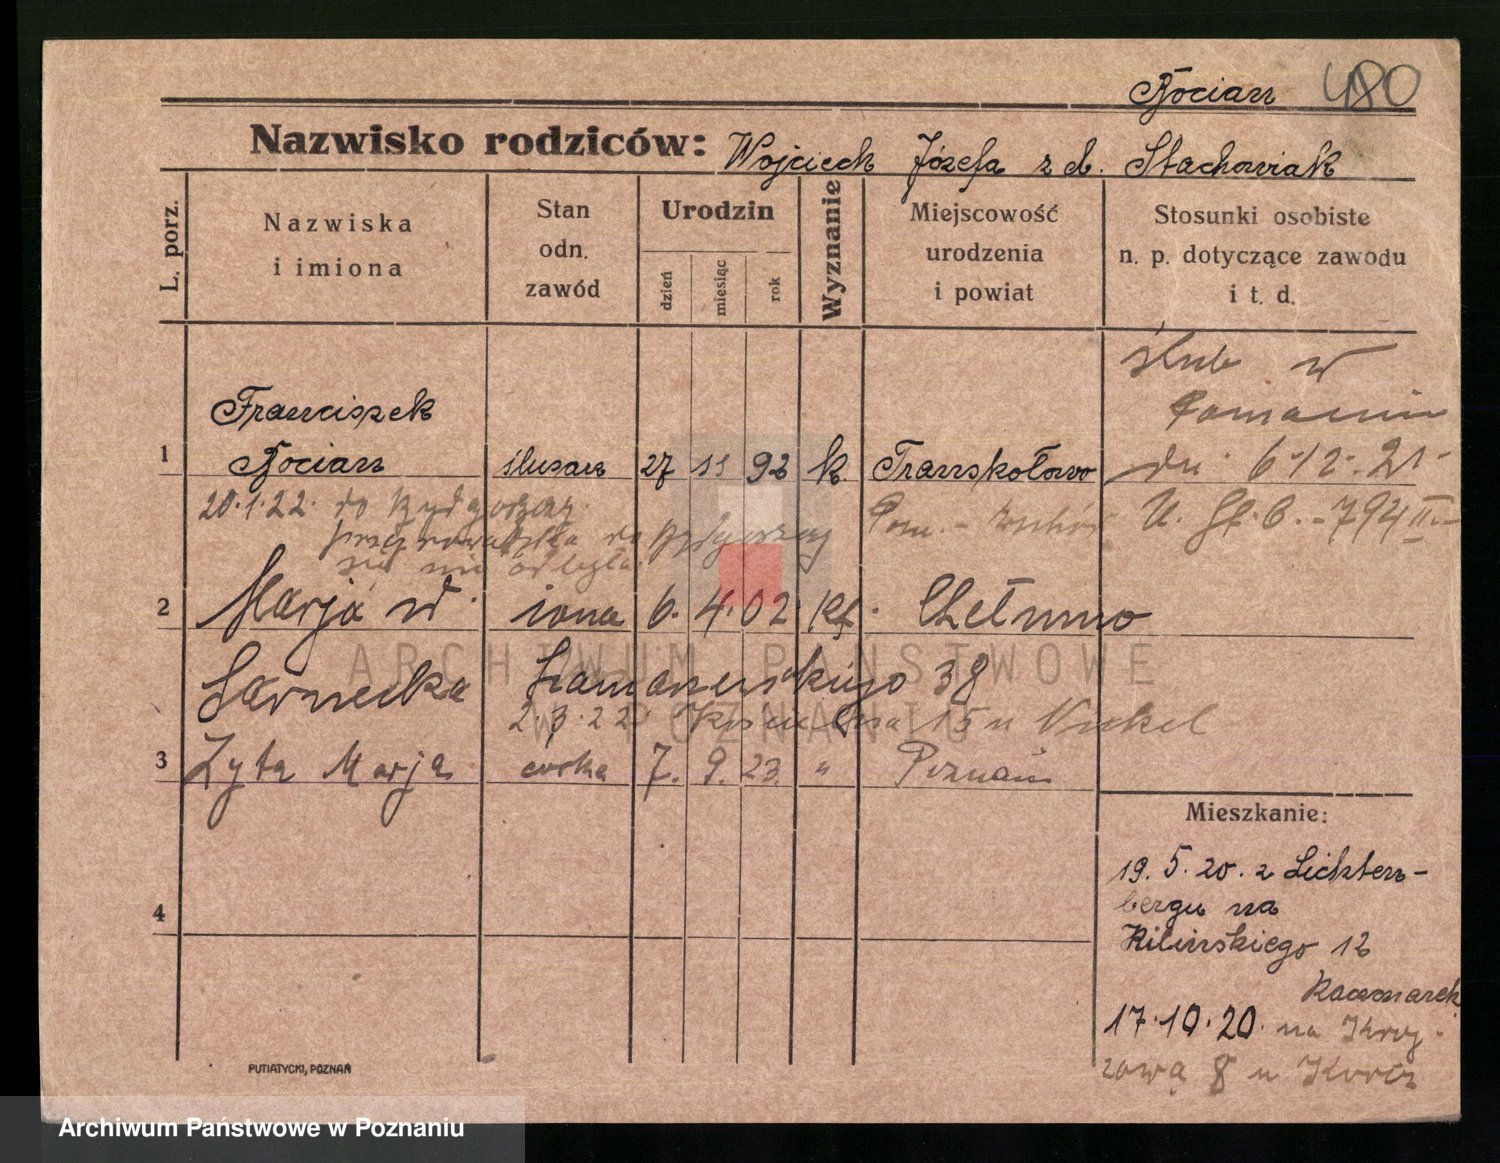 Bocian 480
Nazwisko rodziców: Wojciech Józefa z d. Stachowiak
L. porz.
Nazwiska
i imiona
Stan
odn.
zawód
Urodzin
dzień
miesiąc
rok
Wyznanie
Miejscowość
urodzenia
i powiat
Stosunki osobiste
n. p. dotyczące zawodu
i t. d.
ślub w
Poznaniu
dn. 6-12-21
U. St. C. - 794 II
1 Franciszek
Bocian ślusarz 27 11 92 k.
20.1.22. do Bydgoszczy
przeprowadzka do Bydgoszczy
się nie odbyła.
2 Marja żona 6. 4. 02 Kf. Chełmno
Sarnecka 38
2.3.22 15 u Nickel
3 Zyta Marja córka 7. 9. 23. " Poznań
4
Mieszkanie:
19. 5. 20. z Lichten-
bergu na
Kilińskiego 12
Kaczmarek
17.10.20. na Krzy-
żową 8 u
PUTIATYCKI, POZNAŃ
ARCHIWUM PAŃSTWOWE
W POZNANIU
Archiwum Państwowe w Poznaniu